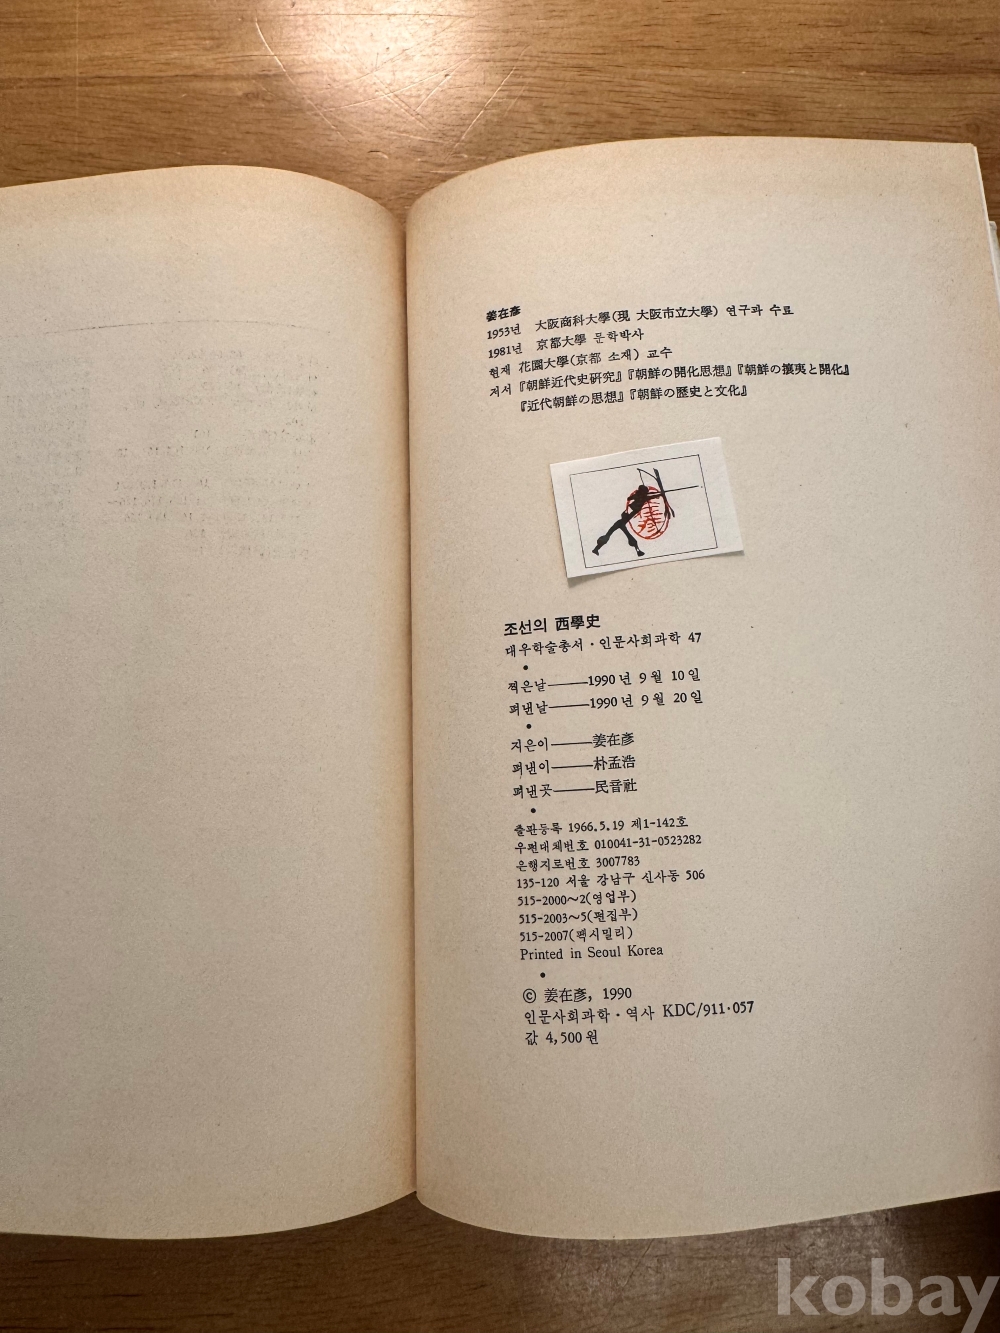 姜在彥
1953년 大阪商科大學(現 大阪市立大學) 연구과 수료
1981년 京都大學 문학박사
현재 花園大學(京都 소재) 교수
저서 『朝鮮近代史硏究』『朝鮮の開化思想』『朝鮮の攘夷と開化』
『近代朝鮮の思想』『朝鮮の歷史と文化』
在彥
조선의 西學史
대우학술총서·인문사회과학 47
•
찍은날——1990년 9월 10일
펴낸날——1990년 9월 20일
•
지은이——姜在彥
펴낸이——朴孟浩
펴낸곳——民音社
•
출판등록 1966.5.19 제1-142호
우편대체번호 010041-31-0523282
은행지로번호 3007783
135-120 서울 강남구 신사동 506
515-2000~2(영업부)
515-2003~5(편집부)
515-2007(팩시밀리)
Printed in Seoul Korea
•
© 姜在彥, 1990
인문사회과학·역사 KDC/911·057
값 4,500원
kobay